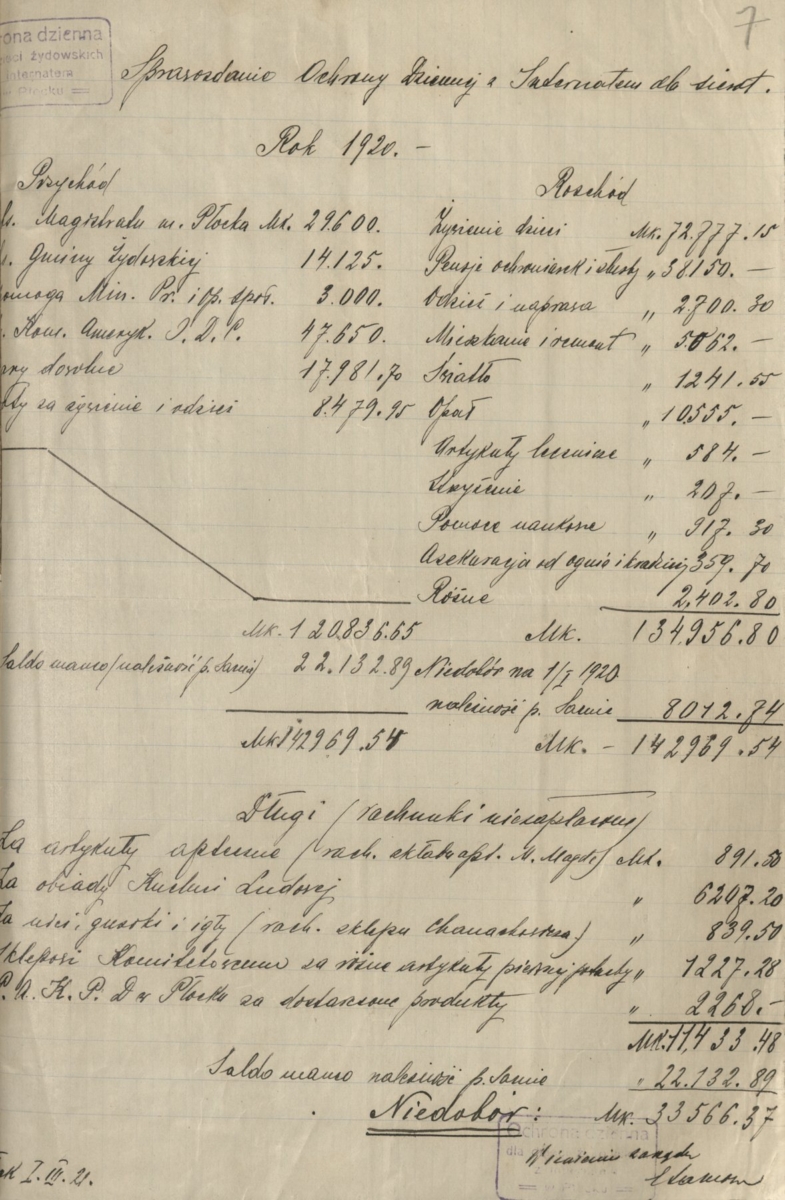 ona dzienna
żydowskich
Internatem
Płocku
7
Sprawozdanie Ochrony Dziennej z Internatem dla sierot.
Rok 1920. –
Przychód
Magistratu m. Płocka Mk. 29.600.
Gminy Żydowskiej 14.125.
omoga Min. Pr. i Op. społ. 3.000.
Kom. Ameryk. J. D. C. 47.650.
ary dowolne 17.981.70
aty za żywienie i odzież 8.479.95
Mk. 120.836.65
Saldo manco (należność p. Sarnie) 22.132.89
Mk 142969.54
Rozchód
Żywienie dzieci Mk. 72.777.15
Pensje ochroniarek i służby „ 38150. –
Odzież i naprawa „ 2.700.30
Mieszkanie i remont „ 5.062. –
Światło „ 1241.55
Opał „ 10.555. –
Artykuły lecznicze „ 584. –
Strzyżenie „ 207. –
Pomoce naukowe „ 917.30
Asekuracja od ognia i kradzieży 359.70
Różne 2.402.80
Mk. 134956.80
Niedobór na 1/I 1920
należność p. Sarnie 8012.74
Mk. – 142969.54
Długi (rachunki niezapłacone)
Za artykuły apteczne (rach. składu apt. M. Magde) Mk. 891.50
Za obiady Kuchni Ludowej „ 6207.20
Za nici, guziki i igły (rach. sklepu) „ 839.50
Sklepowi Komitetowemu za różne artykuły pierwszej potrzeby „ 1227.28
P. A. K. P. D w Płocku za dostarczone produkty „ 2268. –
Mk. 11,433.48
Saldo manco należność p. Sarnie „ 22.132.89
Niedobór: Mk. 33566.37
Ochrona dzienna
W imieniu zarządu
k I. III. 21.